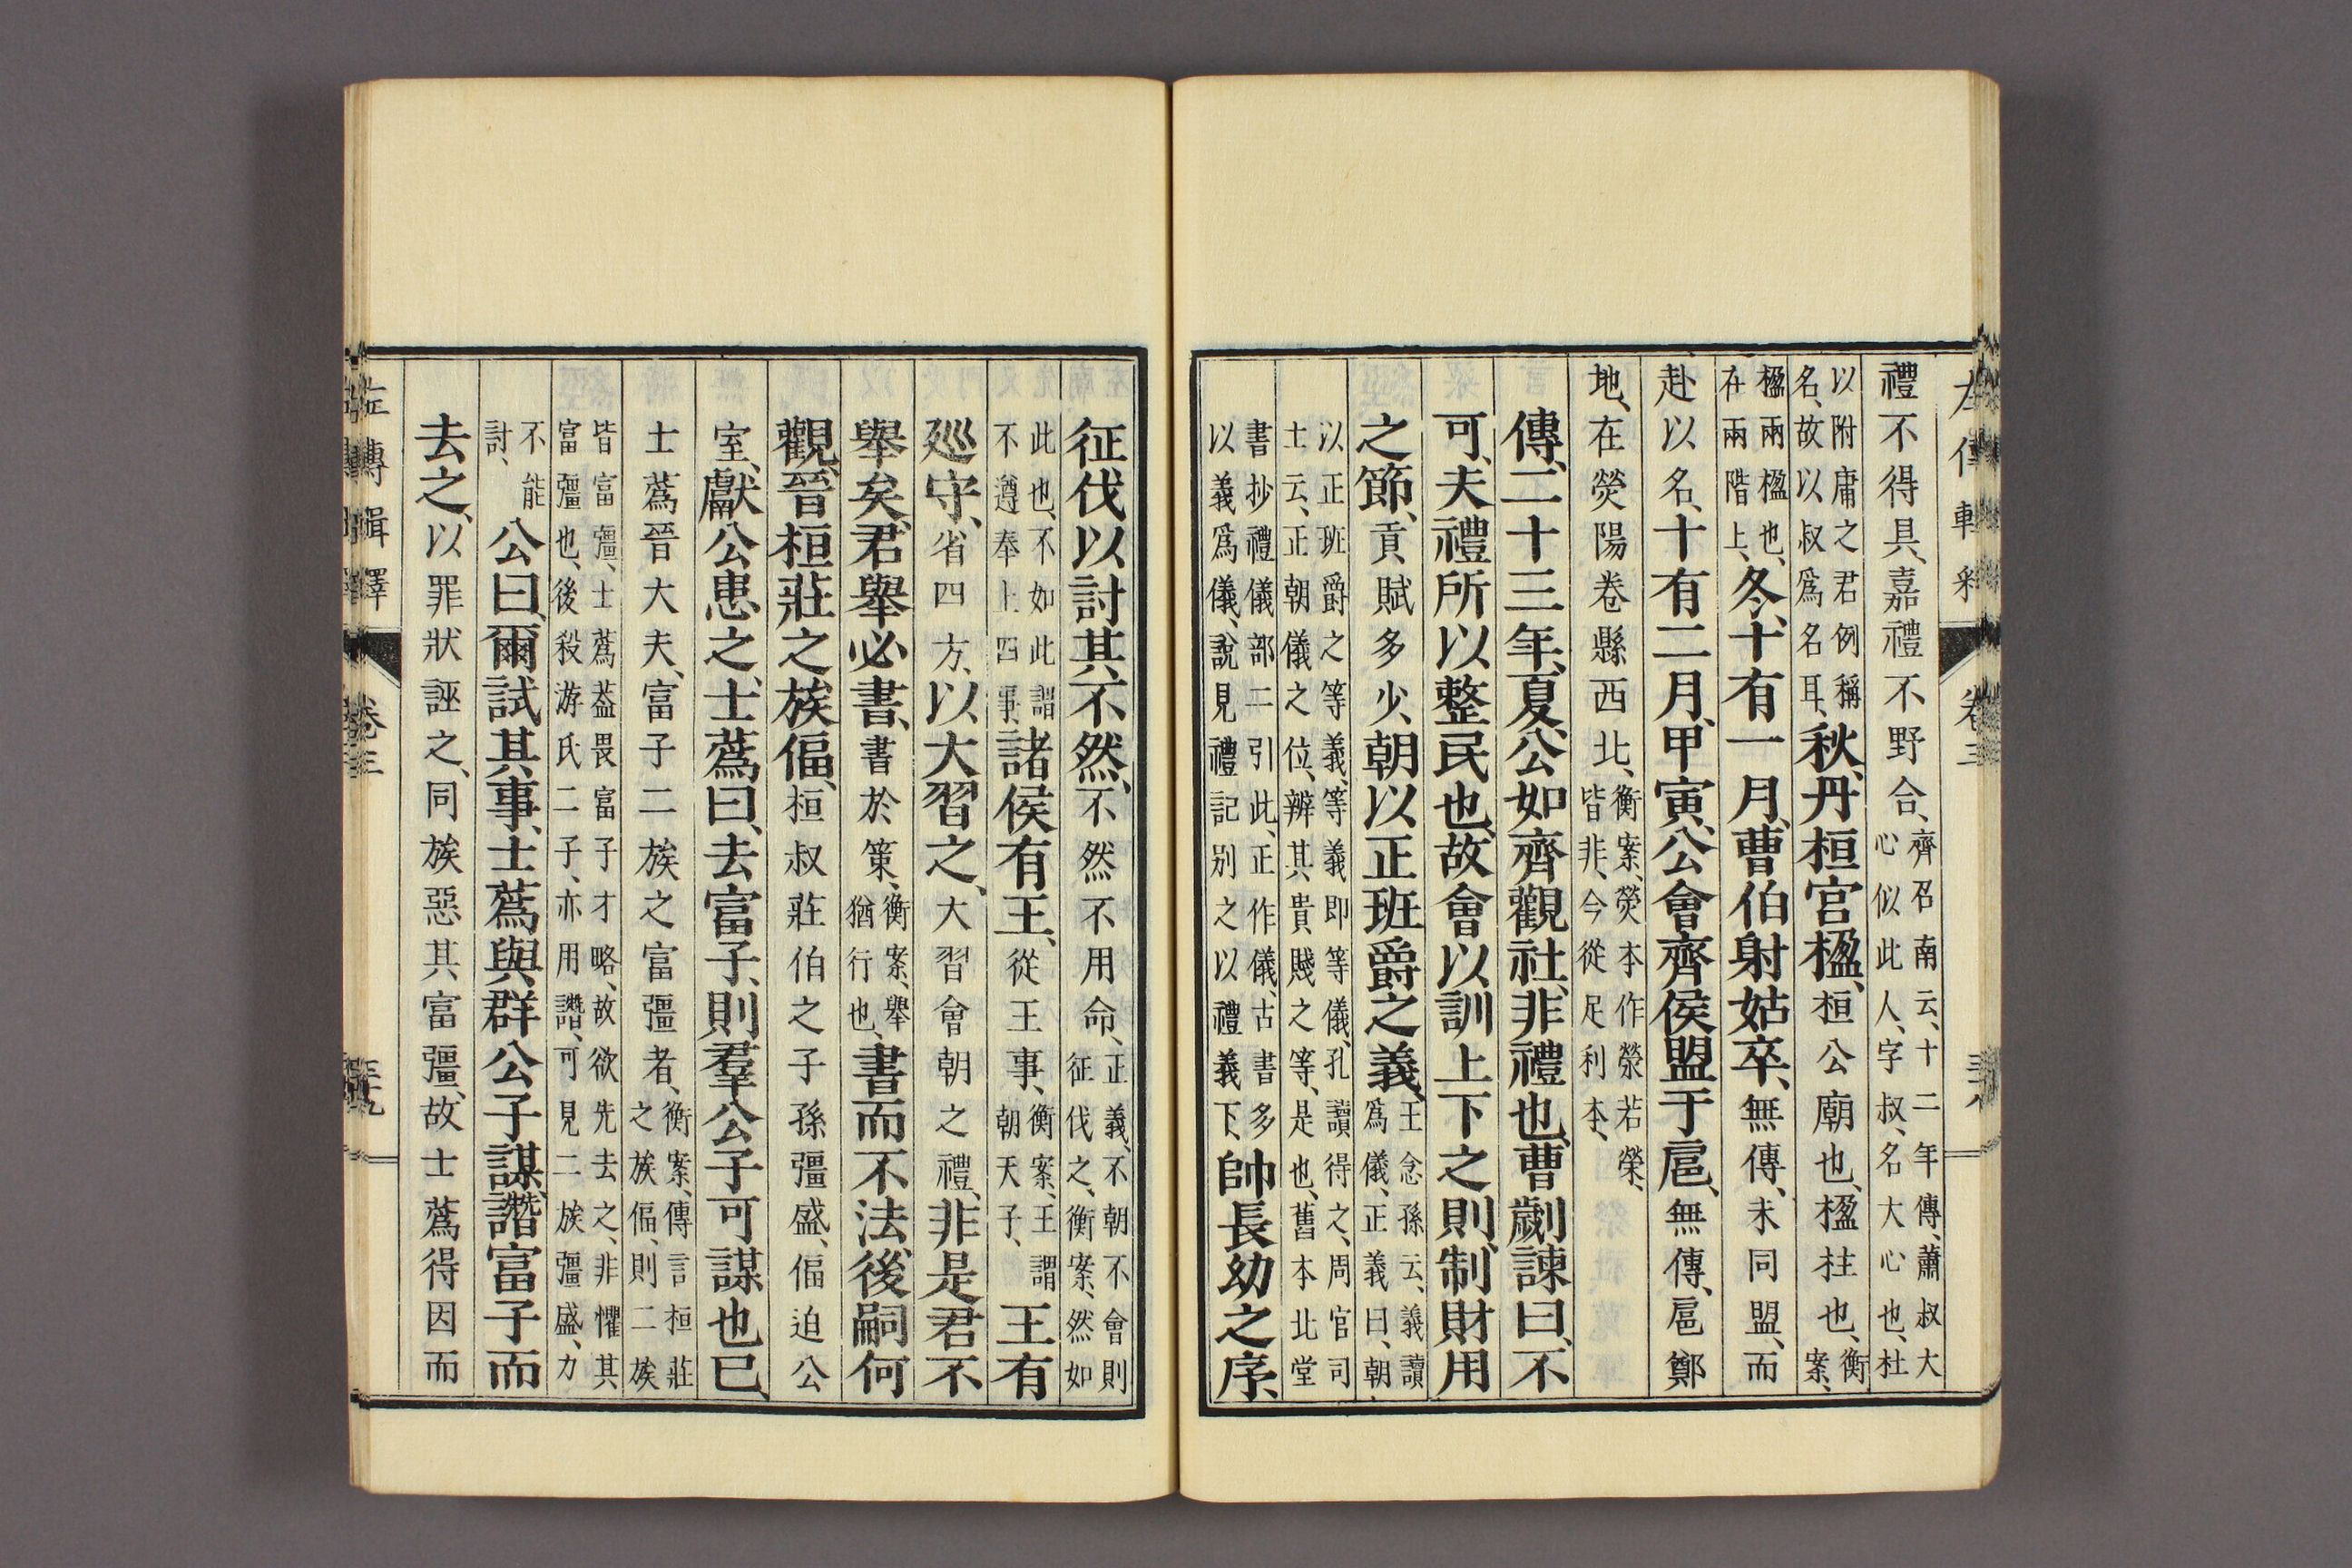 禮不得具、嘉禮不野合、齊召南云、十二年傳、蕭叔大心似此人、字叔、名大心也、杜
以附庸之君例稱名、故以叔爲名耳、秋、丹桓宮楹、桓公廟也、楹柱也、衡案、
楹兩楹也、在兩階上、冬、十有一月、曹伯射姑卒、無傳、未同盟、而
赴以名、十有二月、甲寅、公會齊侯盟于扈、無傳、扈鄭
地、在滎陽卷縣西北、衡案、熒本作滎若榮、皆非、今從足利本、
傳、二十三年、夏、公如齊觀社、非禮也、曹劌諫曰、不
可、夫禮所以整民也、故會以訓上下之則、制財用
之節、貢賦多少、朝以正班爵之義、王念孫云、義讀爲儀、正義曰、朝
以正班爵之等義、等義即等儀、孔讀得之、周官司士云、正朝儀之位、辨其貴賤之等、是也、舊本北堂
書抄禮儀部二引此、正作儀、古書多以義爲儀、說見禮記别之以禮義下、帥長幼之序、
征伐以討其不然、不然不用命、正義、不朝不會則征伐之、衡案、然如
此也、不如此、謂不遵奉上四事、諸侯有王、從王事、衡案、王謂朝天子、王有
廵守、省四方、以大習之、大習會朝之禮、非是君不
舉矣、君舉必書、書於策、衡案、舉猶行也、書而不法、後嗣何
觀、晉桓莊之族偪、桓叔莊伯之子孫彊盛、偪迫公
室、獻公患之、士蔿曰、去富子、則羣公子可謀也已、
士蔿晉大夫、富子二族之富彊者、衡案、傳言桓莊之族偪、則二族
皆富彊、士蔿葢畏富子才略、故欲先去之、非懼其富彊也、後殺游氏二子、亦用譖、可見二族彊盛、力
不能討、公曰、爾試其事、士蔿與群公子謀、譖富子而
去之、以罪狀誣之、同族惡其富彊、故士蔿得因而